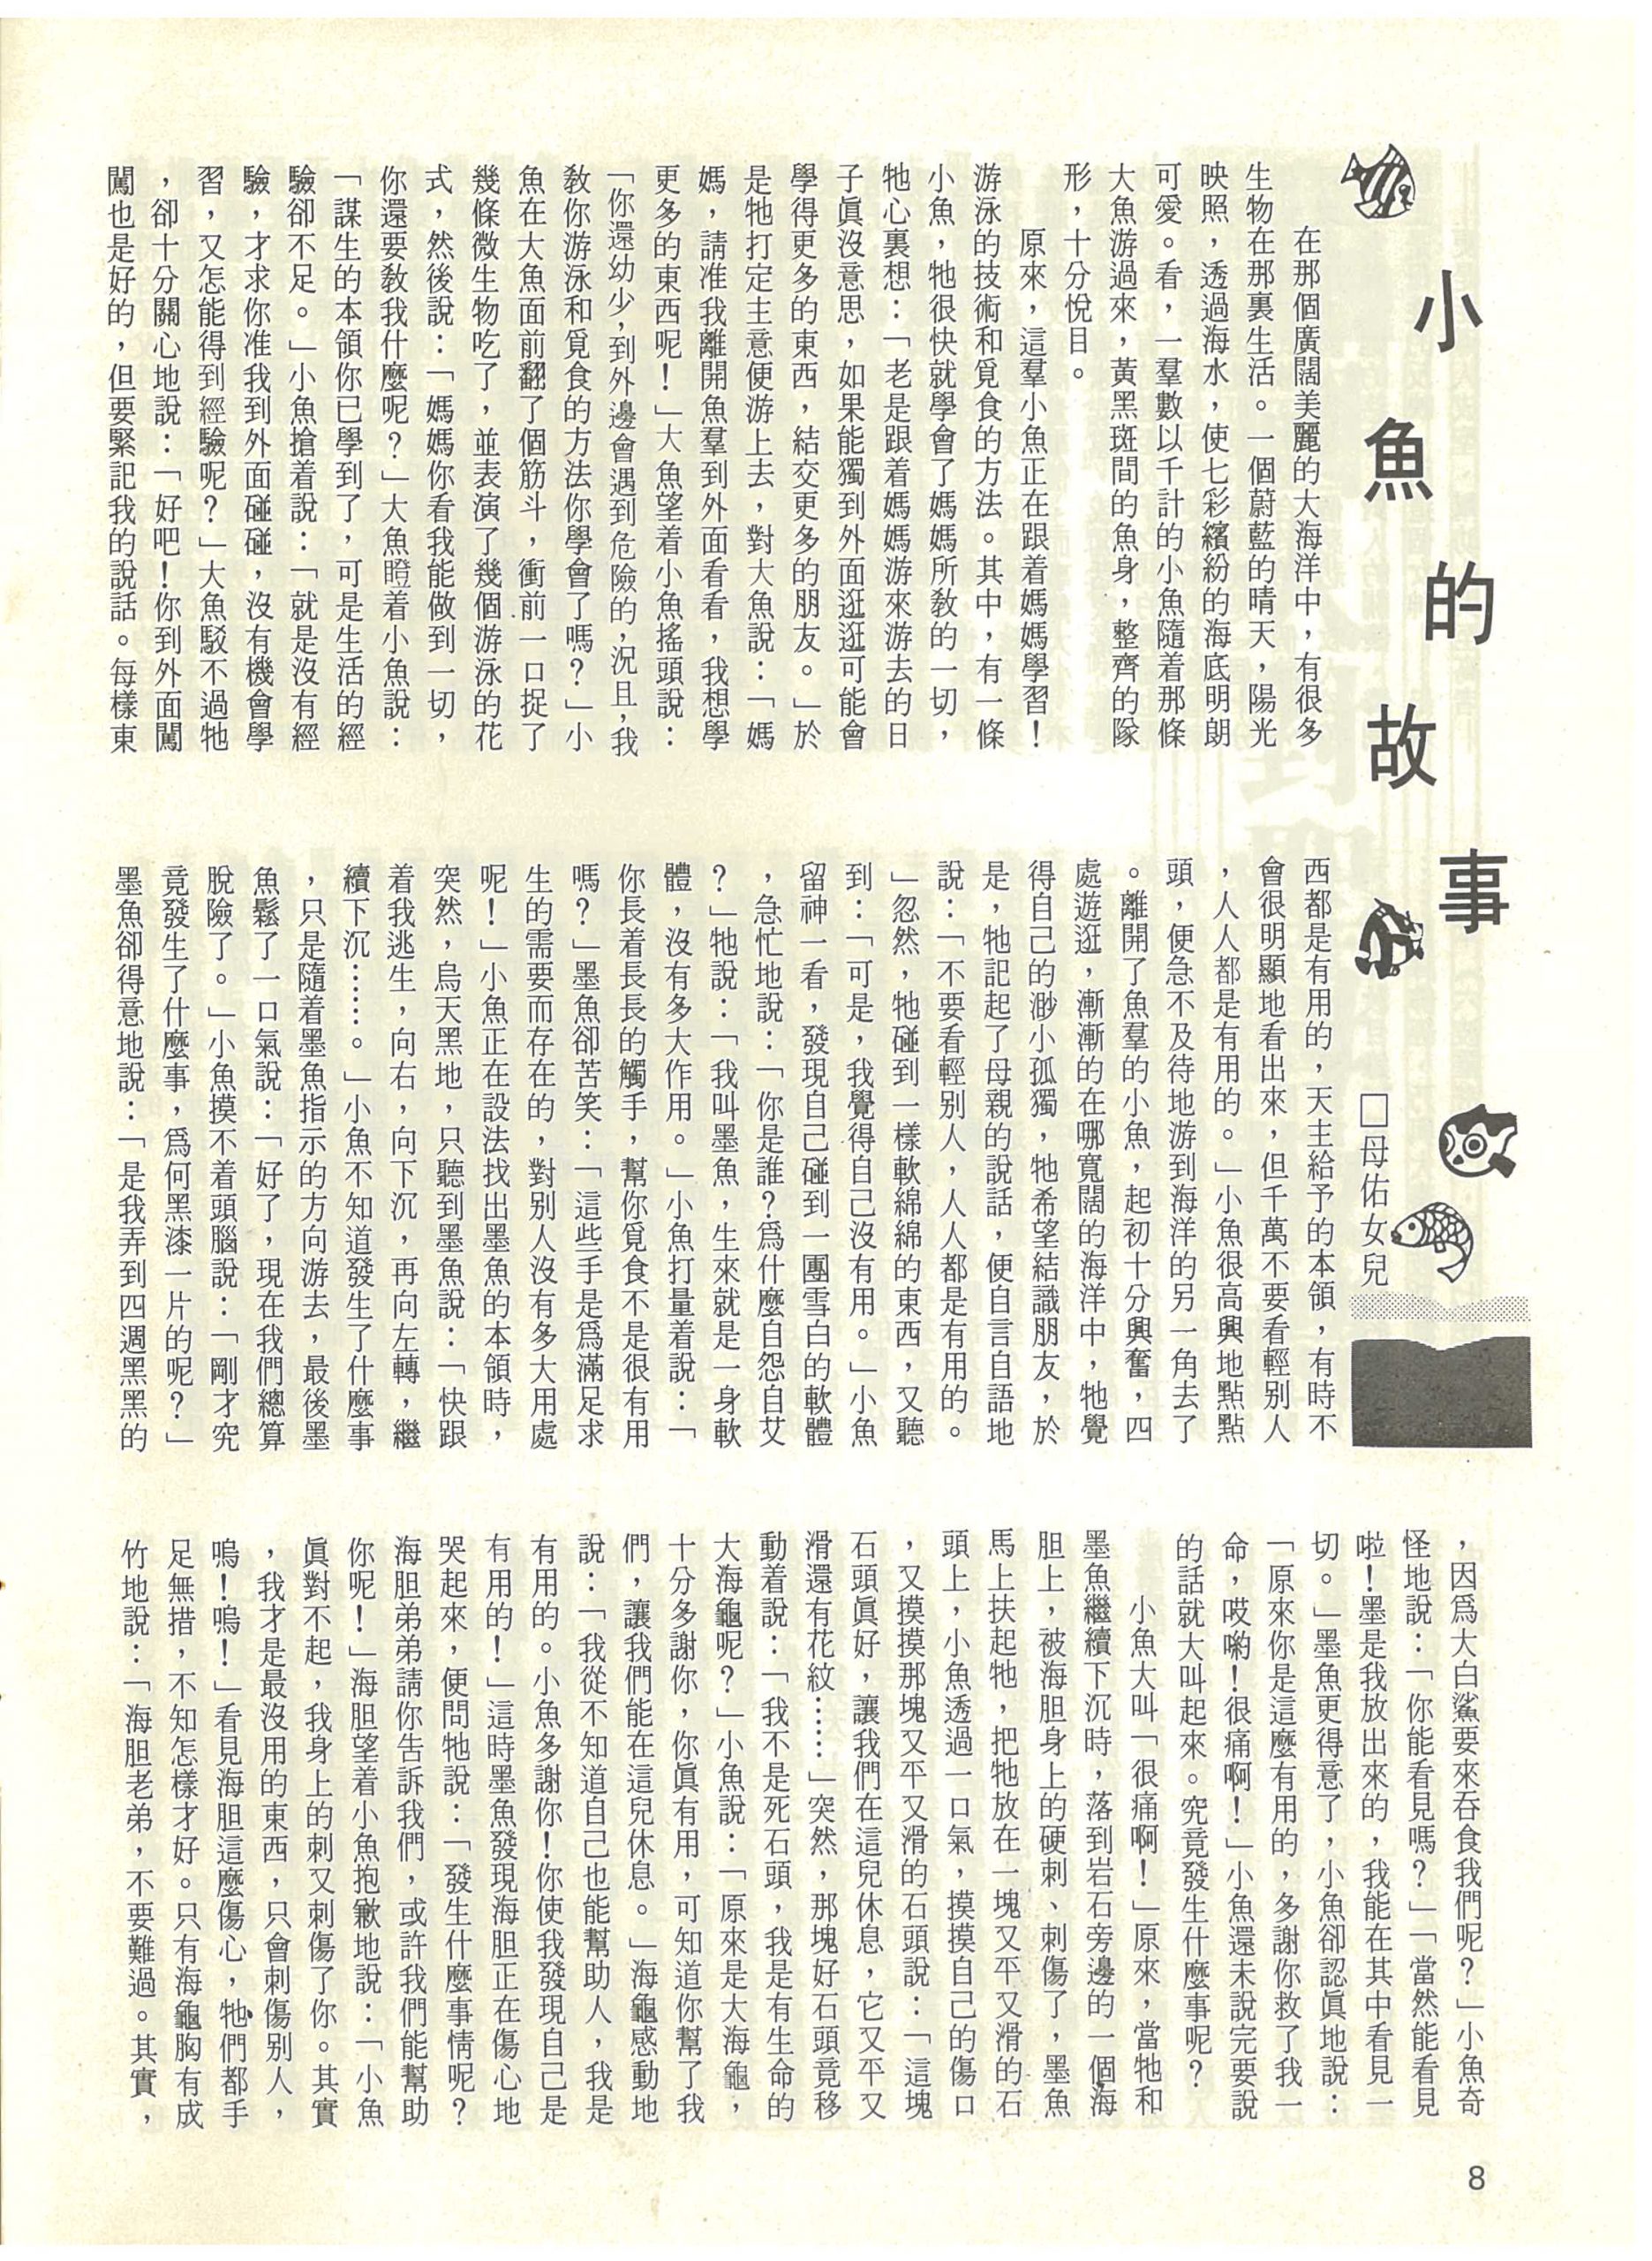 小魚的故事
□母佑女兒
在那個廣闊美麗的大海洋中，有很多
生物在那裏生活。一個蔚藍的晴天，陽光
映照，透過海水，使七彩繽紛的海底明朗
可愛。看，一羣數以千計的小魚隨着那條
大魚游過來，黃黑斑間的魚身，整齊的隊
形，十分悅目。
原來，這羣小魚正在跟着媽媽學習！
游泳的技術和覓食的方法。其中，有一條
小魚，牠很快就學會了媽媽所教的一切，
牠心裏想：「老是跟着媽媽游來游去的日
子眞沒意思，如果能獨到外面逛逛可能會
學得更多的東西，結交更多的朋友。」於
是牠打定主意便游上去，對大魚說：「媽
媽，請准我離開魚羣到外面看看，我想學
更多的東西呢！」大魚望着小魚搖頭說：
「你還幼少，到外邊會遇到危險的，況且，我
教你游泳和覓食的方法你學會了嗎？」小
魚在大魚面前翻了個筋斗，衝前一口捉了
幾條微生物吃了，並表演了幾個游泳的花
式，然後說：「媽媽你看我能做到一切，
你還要教我什麼呢？」大魚瞪着小魚說：
「謀生的本領你已學到了，可是生活的經
驗卻不足。」小魚搶着說：「就是沒有經
驗，才求你准我到外面碰碰，沒有機會學
習，又怎能得到經驗呢？」大魚駁不過牠
，卻十分關心地說：「好吧！你到外面闖
闖也是好的，但要緊記我的說話。每樣東
西都是有用的，天主給予的本領，有時不
會很明顯地看出來，但千萬不要看輕別人
，人人都是有用的。」小魚很高興地點點
頭，便急不及待地游到海洋的另一角去了
。離開了魚羣的小魚，起初十分興奮，四
處遊逛，漸漸的在哪寬闊的海洋中，牠覺
得自己的渺小孤獨，牠希望結識朋友，於
是，牠記起了母親的說話，便自言自語地
說：「不要看輕別人，人人都是有用的。
」忽然，牠碰到一樣軟綿綿的東西，又聽
到：「可是，我覺得自己沒有用。」小魚
留神一看，發現自己碰到一團雪白的軟體
，急忙地說：「你是誰？爲什麼自怨自艾
？」牠說：「我叫墨魚，生來就是一身軟
體，沒有多大作用。」小魚打量着說：「
你長着長長的觸手，幫你覓食不是很有用
嗎？」墨魚卻苦笑：「這些手是爲滿足求
生的需要而存在的，對別人沒有多大用處
呢！」小魚正在設法找出墨魚的本領時，
突然，烏天黑地，只聽到墨魚說：「快跟
着我逃生，向右，向下沉，再向左轉，繼
續下沉……。」小魚不知道發生了什麼事
，只是隨着墨魚指示的方向游去，最後墨
魚鬆了一口氣說：「好了，現在我們總算
脫險了。」小魚摸不着頭腦說：「剛才究
竟發生了什麼事，爲何黑漆一片的呢？」
墨魚卻得意地說：「是我弄到四週黑黑的
，因爲大白鯊要來吞食我們呢？」小魚奇
怪地說：「你能看見嗎？」「當然能看見
啦！墨是我放出來的，我能在其中看見一
切。」墨魚更得意了，小魚卻認眞地說：
「原來你是這麼有用的，多謝你救了我一
命，哎喲！很痛啊！」小魚還未說完要說
的話就大叫起來。究竟發生什麼事呢？
小魚大叫「很痛啊！」原來，當牠和
墨魚繼續下沉時，落到岩石旁邊的一個海
胆上，被海胆身上的硬刺、刺傷了，墨魚
馬上扶起牠，把牠放在一塊又平又滑的石
頭上，小魚透過一口氣，摸摸自己的傷口
，又摸摸那塊又平又滑的石頭說：「這塊
石頭眞好，讓我們在這兒休息，它又平又
滑還有花紋……」突然，那塊好石頭竟移
動着說：「我不是死石頭，我是有生命的
大海龜呢？」小魚說：「原來是大海龜，
十分多謝你，你眞有用，可知道你幫了我
們，讓我們能在這兒休息。」海龜感動地
說：「我從不知道自己也能幫助人，我是
有用的。小魚多謝你！你使我發現自己是
有用的！」這時墨魚發現海胆正在傷心地
哭起來，便問牠說：「發生什麼事情呢？
海胆弟弟請你告訴我們，或許我們能幫助
你呢！」海胆望着小魚抱歉地說：「小魚
眞對不起，我身上的刺又刺傷了你。其實
，我才是最沒用的東西，只會刺傷別人，
嗚！嗚！」看見海胆這麼傷心，牠們都手
足無措，不知怎樣才好。只有海龜胸有成
竹地說：「海胆老弟，不要難過。其實，
8